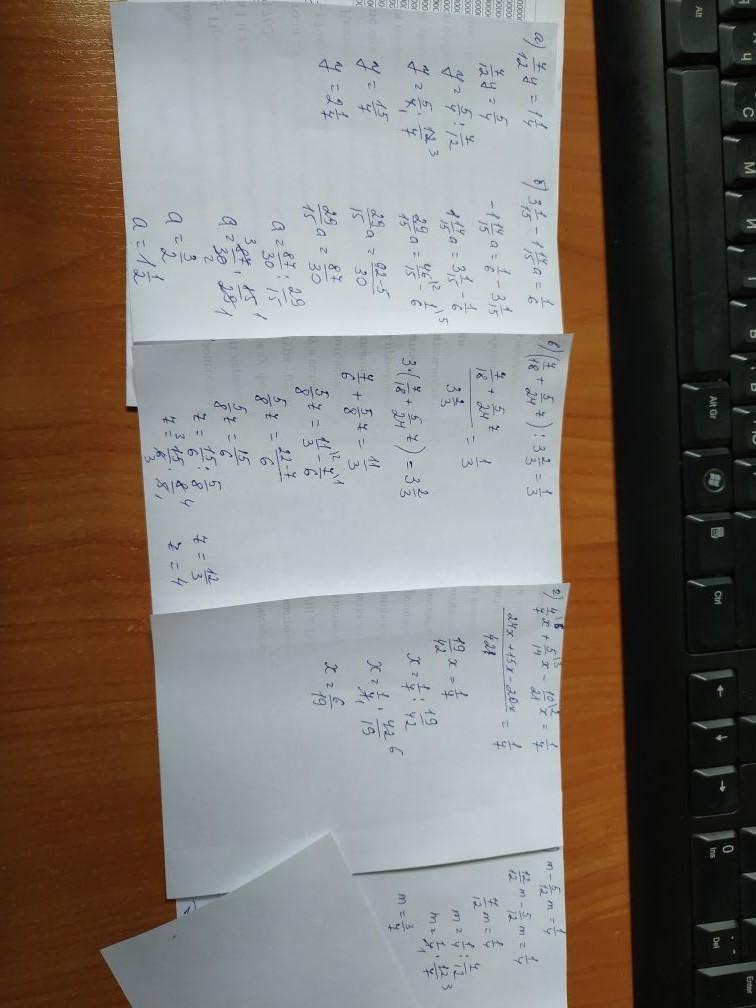 а) 7/12 y = 1 1/4
7/12 y = 5/4
y = 5/4 : 7/12
y = 5/4 · 12/7
y = 15/7
y = 2 1/7
б) 3 1/15 - 1 14/15 a = 1/6
-1 14/15 a = 1/6 - 3 1/15
1 14/15 a = 3 1/15 - 1/6
29/15 a = 46/15 \2 - 1/6 \5
29/15 a = 92-5/30
29/15 a = 87/30
a = 87/30 : 29/15
a = 87/30 · 15/29
a = 3/2
a = 1 1/2
в) (7/18 + 5/24 z) : 3 2/3 = 1/3
7/18 + 5/24 z / 3 2/3 = 1/3
3·(7/18 + 5/24 z) = 3 2/3
7/6 + 5/8 z = 11/3
5/8 z = 11/3 \2 - 7/6 \1
5/8 z = 22-7/6
5/8 z = 15/6
z = 15/6 : 5/8
z = 15/6 · 8/5
z = 12/3
z = 4
г) 4/7 \6 x + 5/14 \3 x - 10/21 \2 x = 1/7
24x+15x-20x / 42 = 1/7
19/42 x = 1/7
x = 1/7 : 19/42
x = 1/7 · 42/19
x = 6/19
m - 5/12 m = 1/4
12/12 m - 5/12 m = 1/4
7/12 m = 1/4
m = 1/4 : 7/12
m = 1/4 · 12/7
m = 3/7
Alt
Alt Gr
Ctrl
0
Ins
Del
Enter
С
М
И